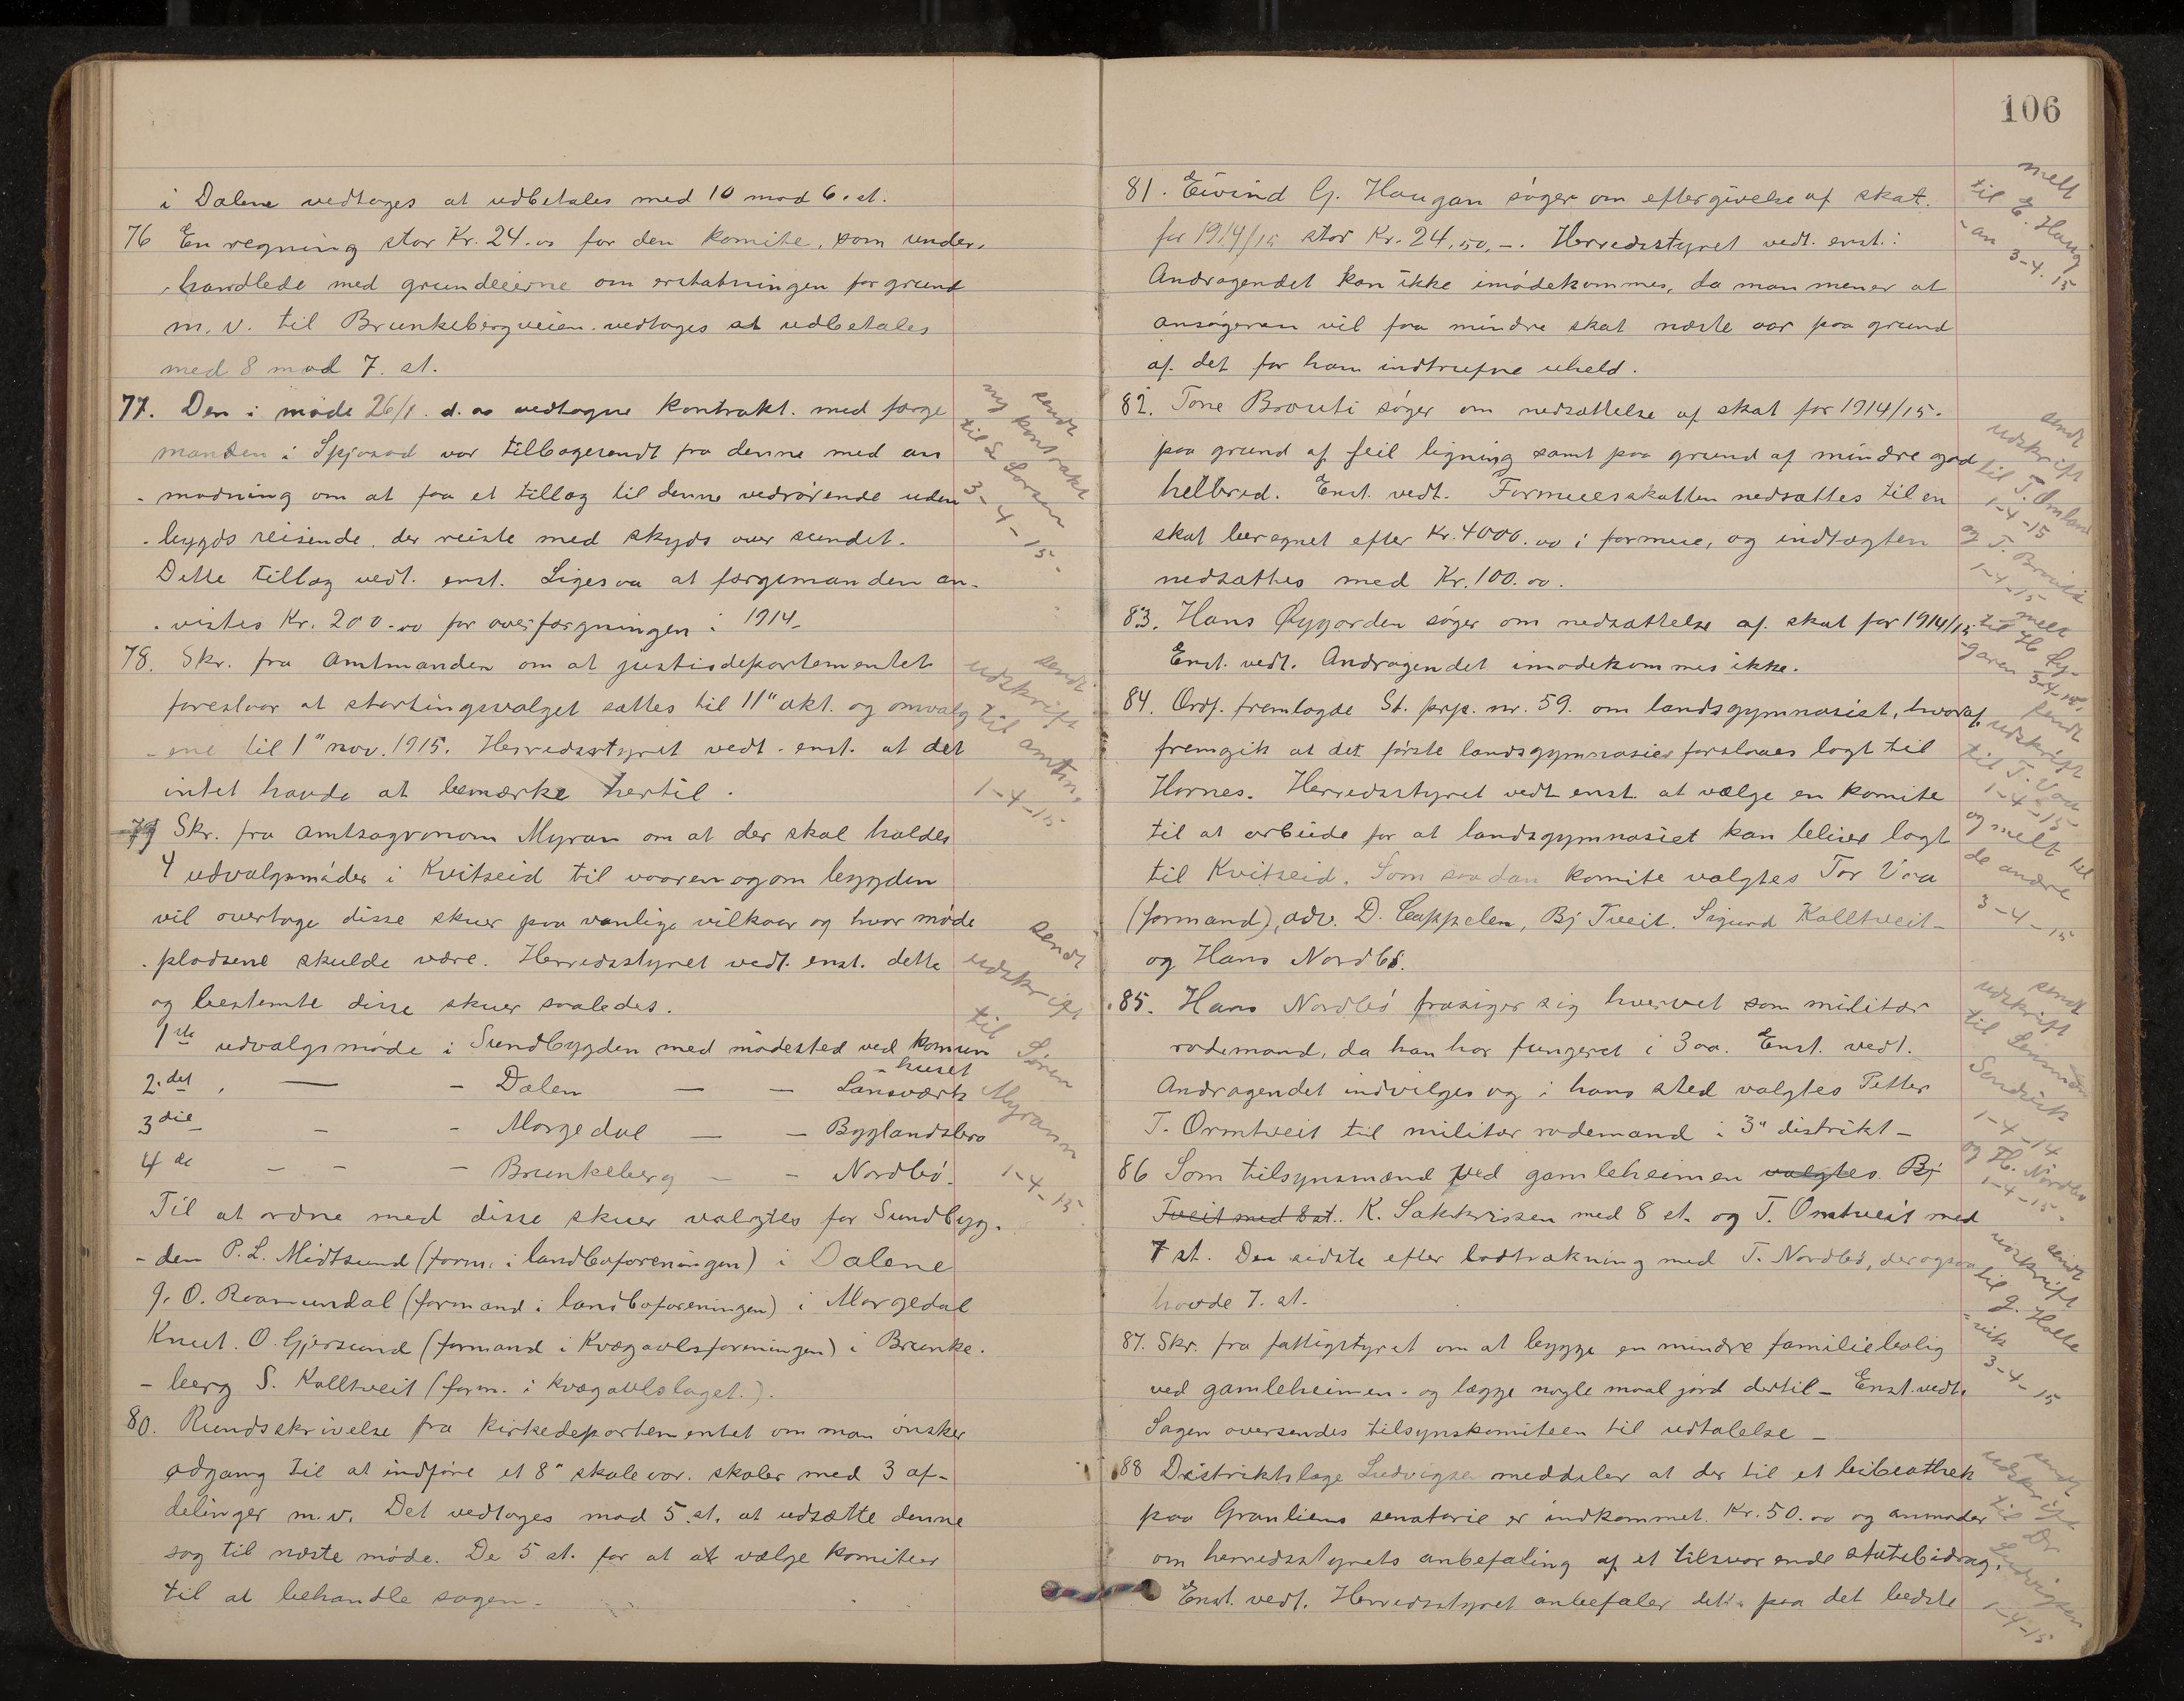 i Dalene vedtoges at udbetales med 10 mod 6. st.
76 En regning stor Kr. 24.00 for den komite, som under-
-handlede med grundeierne om erstatningen for grund
m. v. til Brunkebergveien vedtoges at udbetales
med 8 mod 7. st.
77. Den i møde 26/1 d. aa vedtagne kontrakt. med færge
manden i Spjosod var tilbagesendt fra denne med an
-modning om at faa et tillæg til denne vedrørende uden
-bygds reisende, der reiste med skyds over sundet.
Dette tillæg vedt. enst. Ligesaa at færgemanden an-
-vistes Kr. 200.00 for overfærgningen i 1914.
sendt
ny kontrakt
til S. Lorsen
3-4-15.
78. Skr. fra Amtmanden om at justisdepartementet
foreslaar at stortingsvalget sættes til 11" okt. og omvalg
-ene til 1" nov. 1915. Herredsstyret vedt. enst. at det
intet havde at bemærke hertil.
sendt
udskrift
til amtm.
1-4-15
79 Skr. fra Amtsagronom Myran om at der skal holdes
4 udvalgsmøder i Kvitseid til vaaren og om bygden
vil overtage disse skuer paa vanlige vilkaar og hvor møde
-pladsene skulde være. Herredsstyret vedt. enst. dette
og bestemte disse skuer saaledes.
1ste udvalgsmøde i Sundbygden med mødested ved komun
-huset
2.det , — - Dalen — — Lansværk
3die - - Morgedal — — Byglandsbro
4de - - - Brunkeberg — - Nordbø.
Til at ordne med disse skuer valgtes for Sundbyg-
-den P. L. Midtsund (form. i landboforeningen) i Dalene
G. O. Roamundal (formand i landboforeningen) i Morgedal
Knut. O. Gjersund (formand i Kvægavlsforeningen) i Brunke-
-berg S. Kolltveit (form. i kvægavlslaget.).
sendt
udskrift
til
Søren
Myrann
1-4-15
80. Rundsskrivelse fra Kirkedepartementet om man ønsker
adgang til at indføre et 8" skoleaar. skoler med 3 af-
delinger m.v. Det vedtoges mod 5. st. at udsætte denne
sag til næste møde. De 5 st. for at at vælge komiteer
til at behandle sagen.
106
81. Eivind G. Haugan søger om eftergivelse af skat.
for 1914/15 stor Kr. 24,50,-. Herredsstyret vedt. enst.:
Andragendet kan ikke imødekommes, da man mener at
ansøgeren vil faa mindre skat næste aar paa grund
af det for ham indtrufne uheld.
melt
til E. Haug
-an
3-4-15
82. Tone Brouti søger om nedsættelse af skat for 1914/15.
paa grund af feil ligning samt paa grund af mindre god
helbred. Enst. vedt. Formuesskatten nedsættes til en
skat beregnet efter Kr. 4000.00 i formue, og indtægten
nedsættes med Kr. 100.00.
sendt
udskrift
til T. Omland
1-4-15
og T. Brouti
1-4-15
83. Hans Øygarden søger om nedsættelse af. skat for 1914/15
Enst. vedt. Andragendet imødekommes ikke.
melt
til H Øy-
-garen 3-4-15.
84. Ordf. fremlagde St. prp. nr. 59. om landsgymnasiet, hvoraf
fremgik at det første landsgymnasier forslaaes lagt til
Hornes. Herredsstyret vedt enst. at vælge en komite
til at arbeide for at landsgymnasiet kan blive lagt
til Kvitseid. Som saadan komite valgtes Tor Vaa
(formand), adv. D. Cappelen, Bj Tveit. Sigurd Kolltveit-
og Hans Nordbø.
sendt
udskrift
til T. Vaa
1-4-15-
og melt til
de andre
3-4-15
85. Hans Nordbø frasiger sig hvervet som militær
rodemand, da han har fungeret i 3 aa. Enst. vedt.
Andragendet indvilges og i hans sted valgtes Petter
T. Ormtveit til militær rodemand i 3" distrikt-
sendt
udskrift
til Lensmann
1-4-14
og H. Nordbø
1-4-15.
86 Som tilsynsmænd ved gamleheimen valgtes Bj
Tveit med 8 st.. K. Sakkrissen med 8 st. og T. Omtveit med
7 st. Den sidste efter lodtrækning med T. Nordbø, der ogsaa
havde 7. st.
sendt
udskrift
til G. Holte
-vik
3-4-15
87. Skr. fra fattigstyret om at bygge en mindre familiebolig
ved gamleheimen og lægge nogle maal jord dertil- Enst. vedt.
Sagen oversendes tilsynskomiteen til udtalelse -
88 Distriktslæge Ludvigsen meddeler at der til et bibeothek
paa Granliens senatorie er indkommet Kr. 50.00 og anmoder
om herredsstyrets anbefaling af et tilsvarende statsbidrag.
Enst. vedt. Herredsstyret anbefaler det paa det bedste
sendt
udskrift
til Dr
Ludvigsen
1-4-15